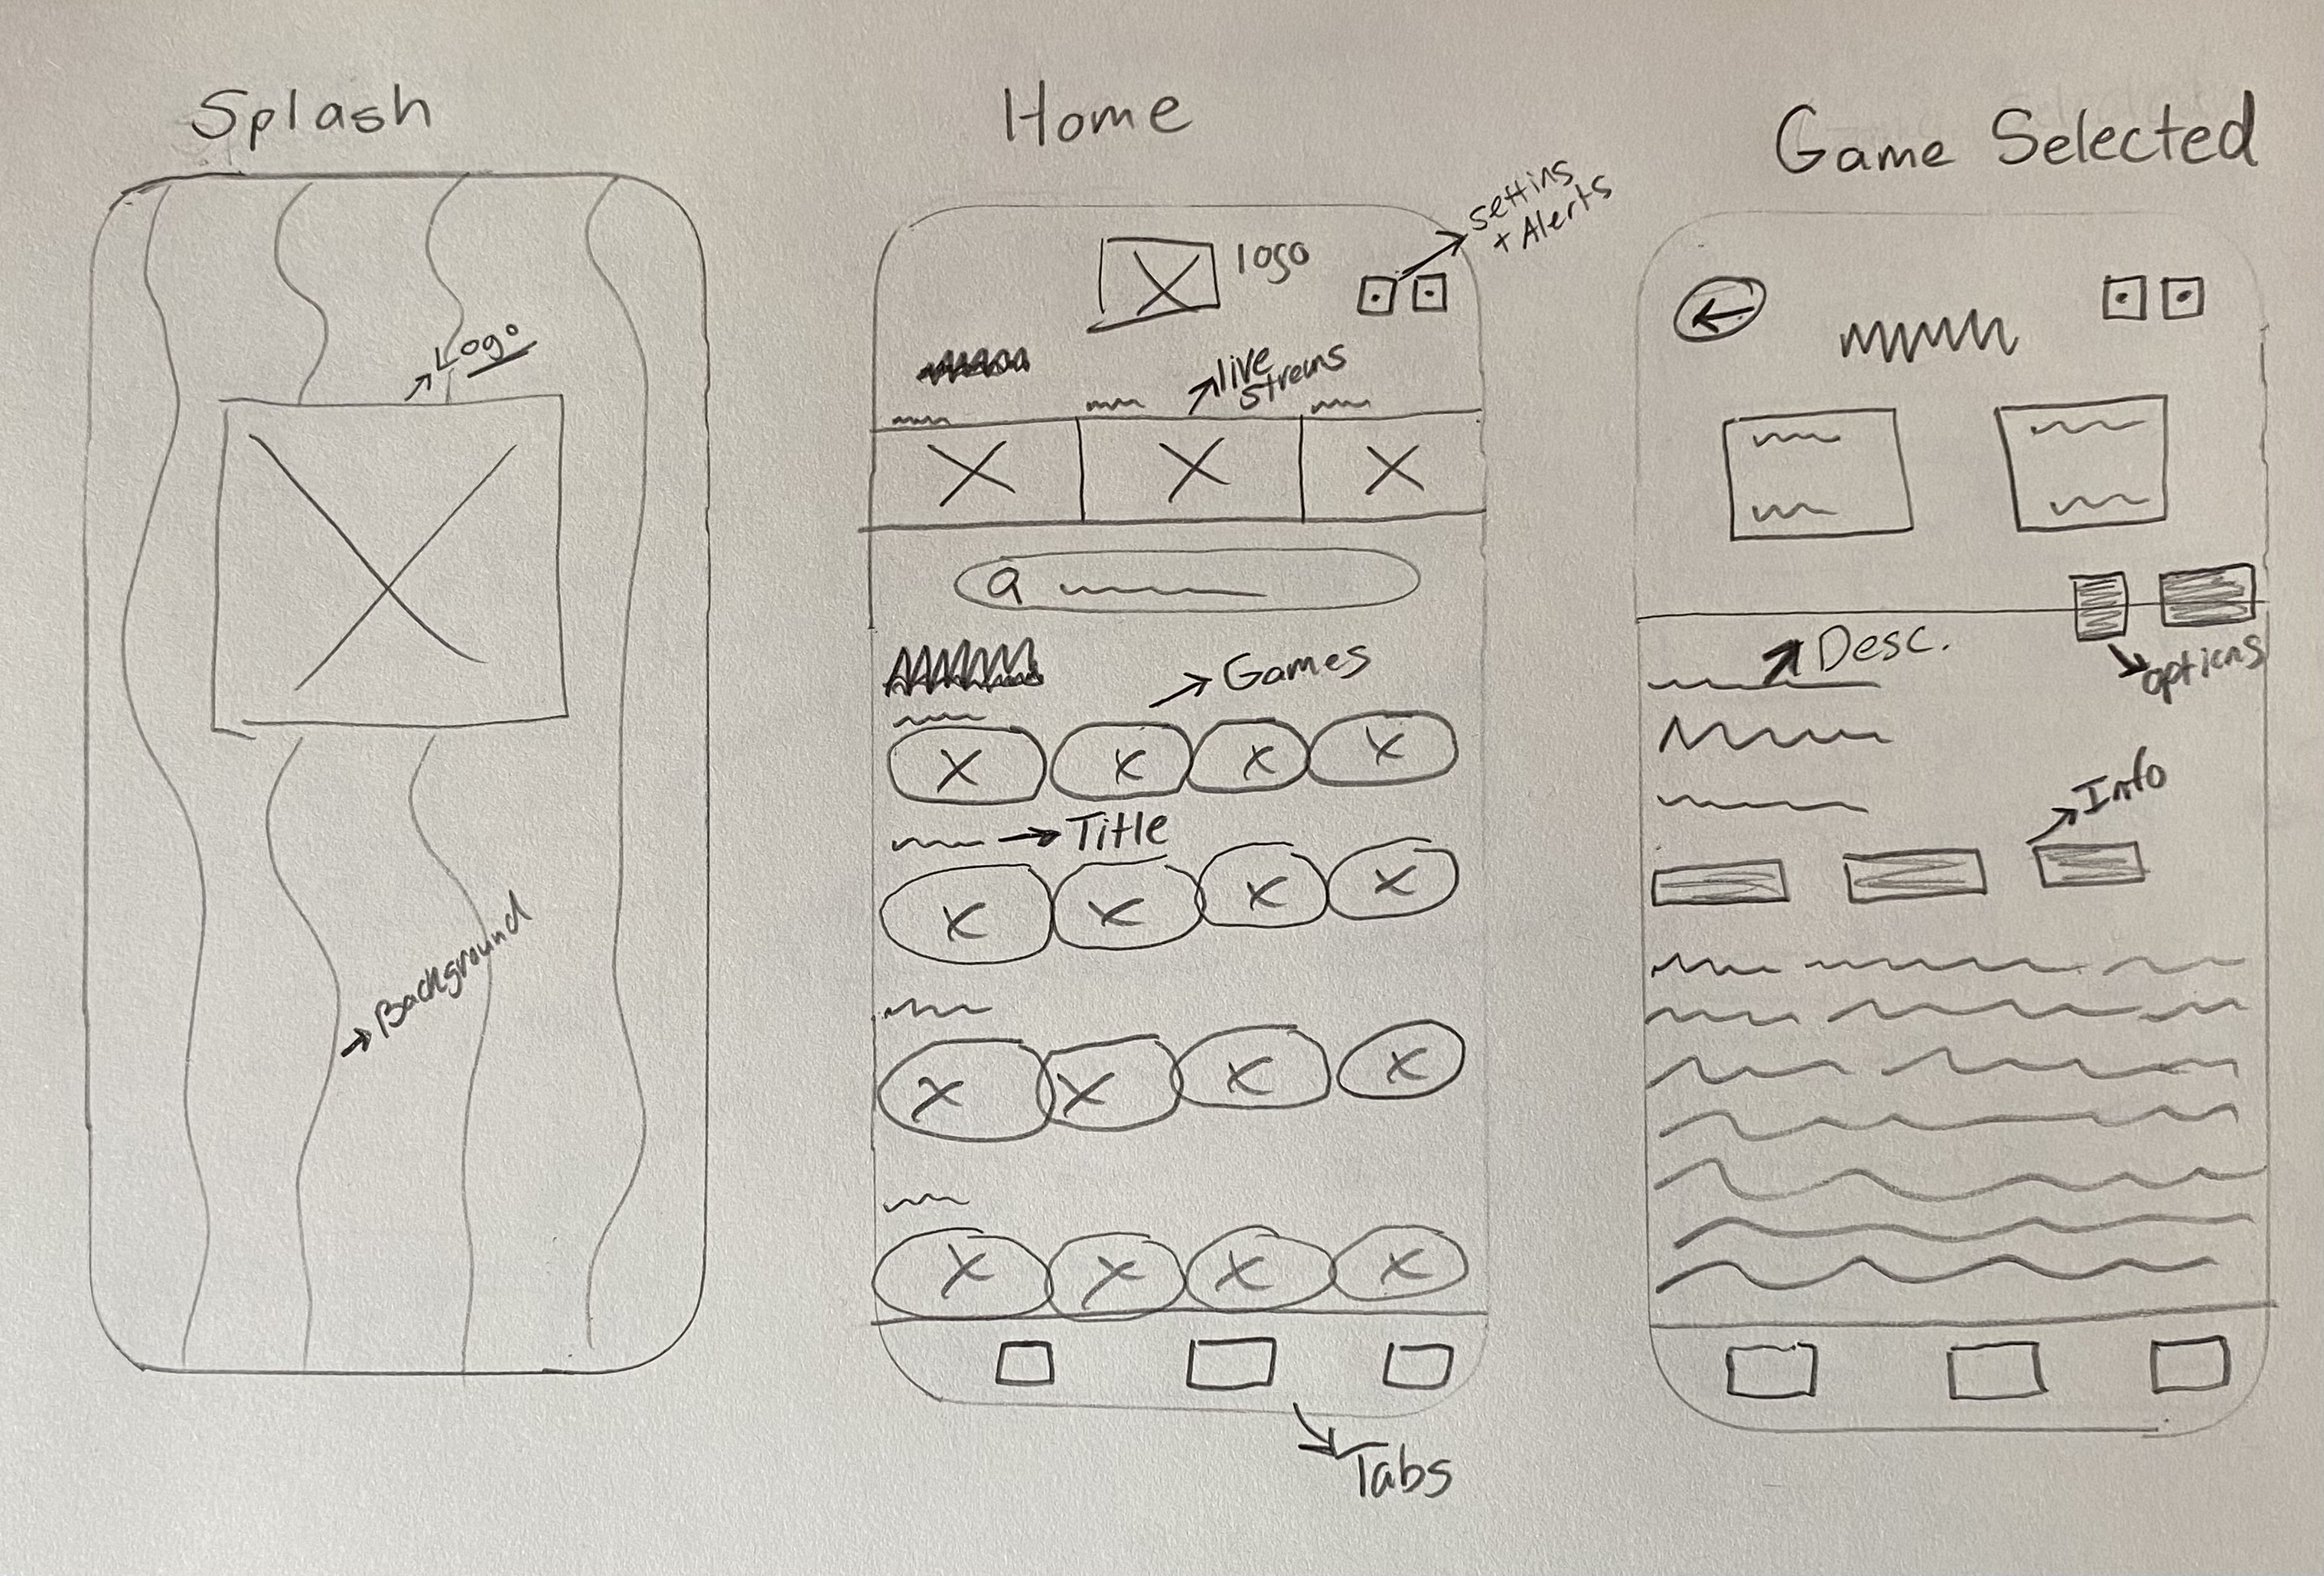 Splash
Logo
Background
Home
logo
settins
+ Alerts
live
strems
Games
Title
Tabs
Game Selected
Desc.
options
Info